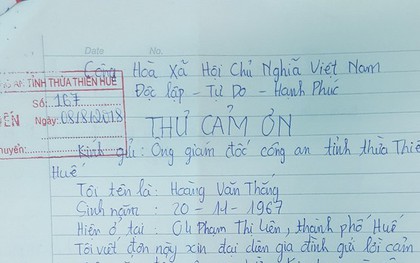 Date No.
Cộng Hoà Xã Hội Chủ Nghĩa Việt Nam
Độc lập - Tự Do - Hạnh Phúc
CÔNG AN TỈNH THỪA THIÊN HUẾ
Số: 167
ĐẾN Ngày: 08/8/2018
Chuyển:
THƯ CẢM ƠN
Kính gửi: Ông giám đốc công an tỉnh thừa Thiê
Huế
Tôi tên là: Hoàng Văn Thắng
Sinh năm: 20-11-1967
Hiện ở tại: 04 Phạm Thị Liên, thành phố Huế
Tôi viết đơn này xin đại diện gia đình gửi lời cảm